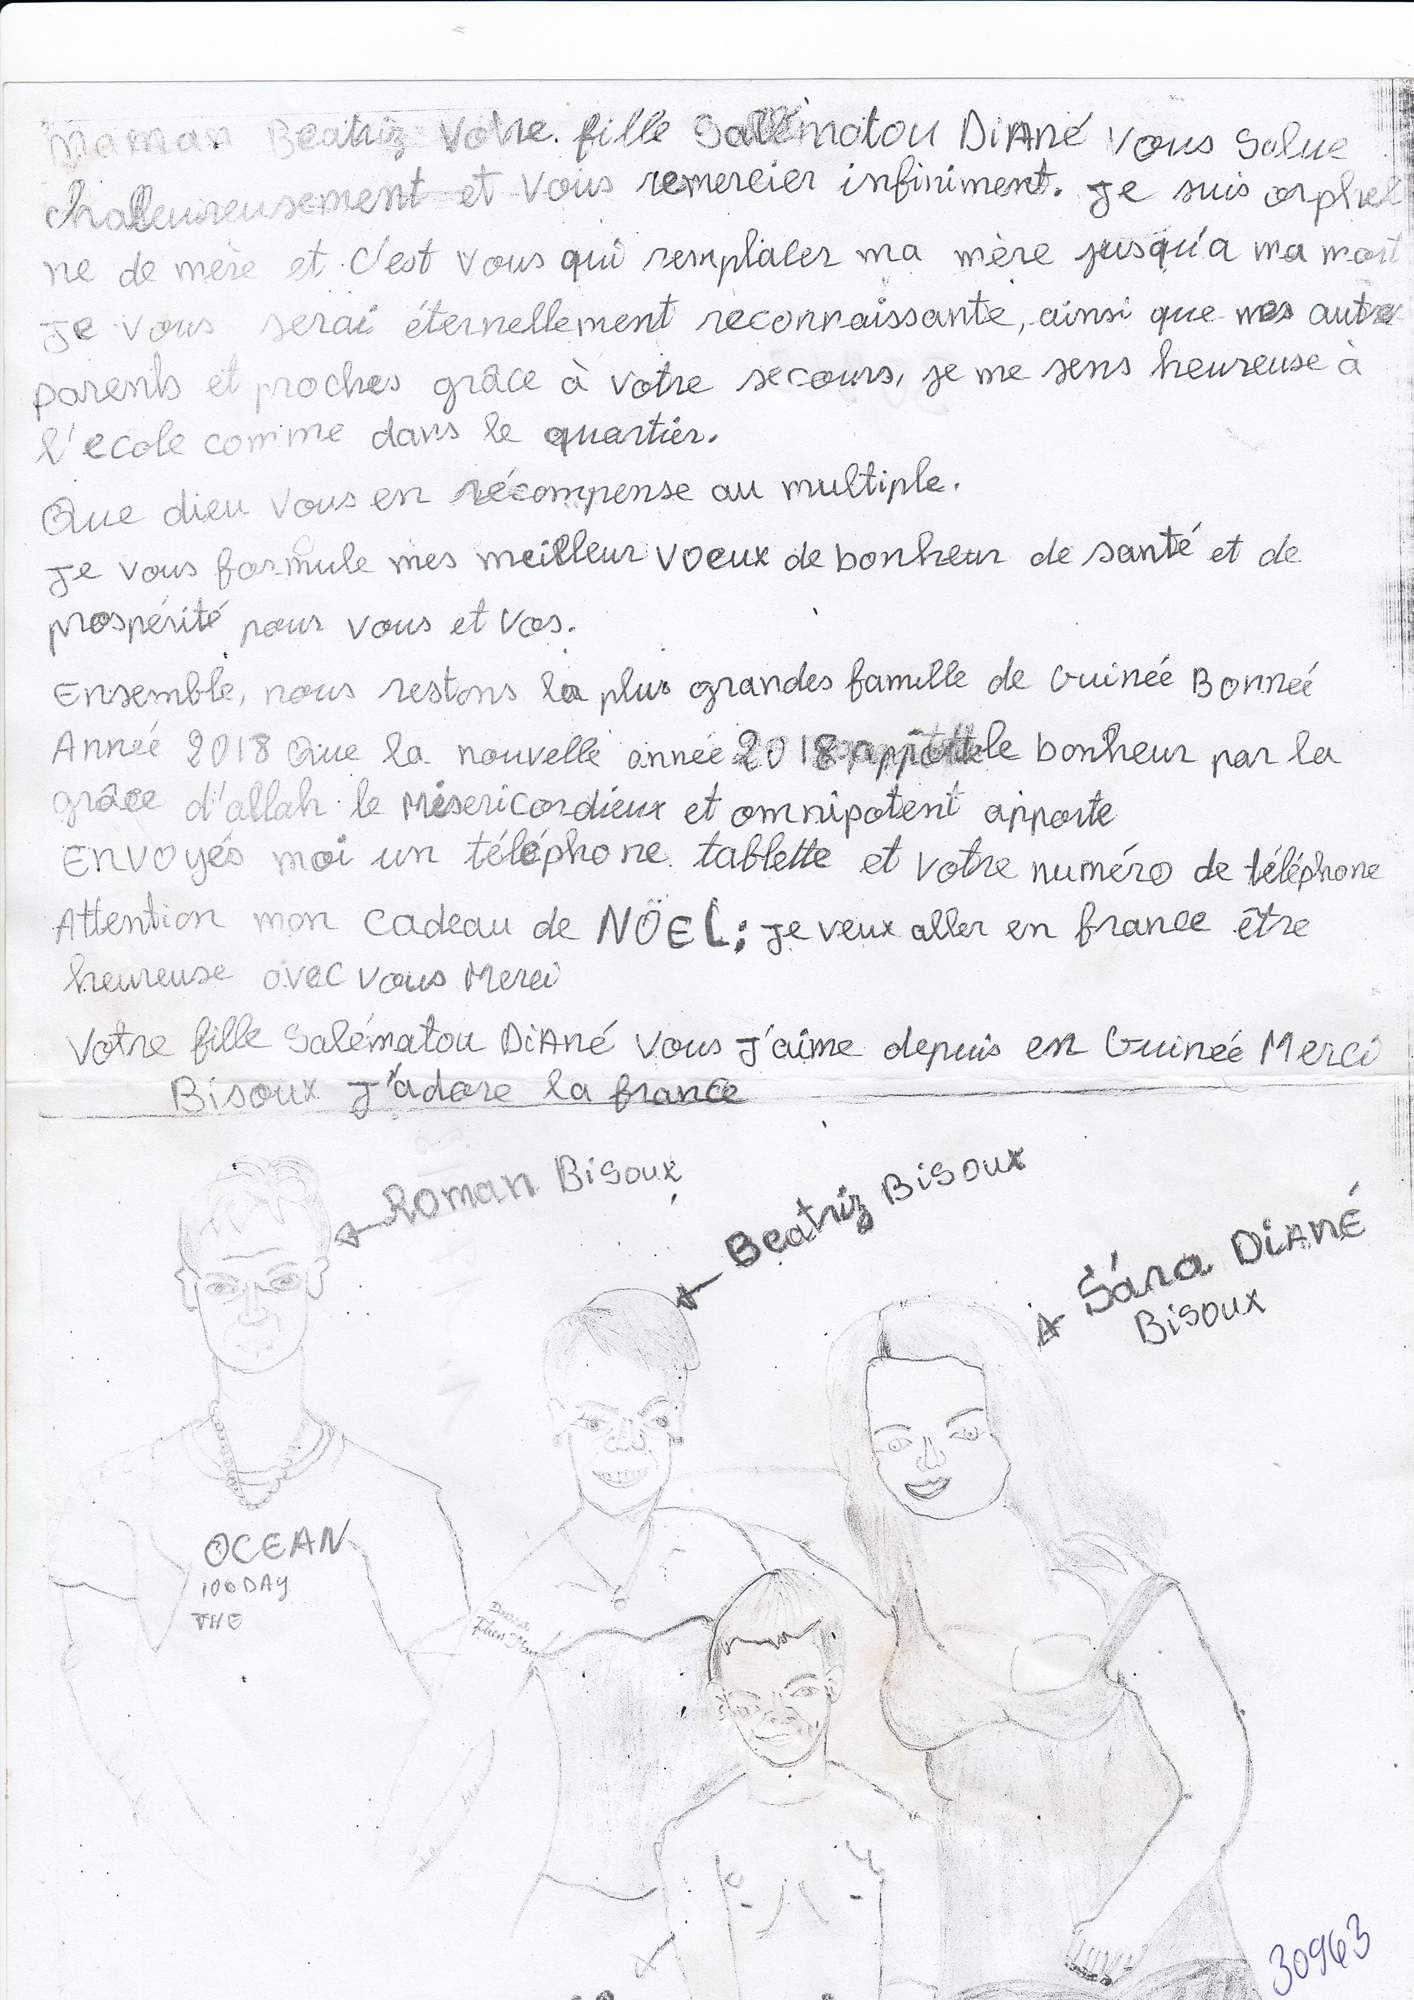 Maman Beatriz Votre. fille Salématou DiAné Vous Salue
challeureusement et Vous remercier infiniment. Je suis orphel
ne de mère et c'est Vous qui remplacer ma mère jusqu'a ma mort
Je vous serai éternellement reconnaissante, ainsi que mes autre
parents et proches grâce à votre secours, je me sens heureuse à
l'ecole comme dans le quartier.
Que dieu vous en récompense au multiple.
Je vous formule mes meilleur voeux de bonheur de santé et de
prospérité pour vous et vos.
Ensemble, nous restons la plus grandes famille de Guinée Bonneé
Anneé 2018 Que la nouvelle année 2018 le bonheur par la
grâce d'allah le Misericordieux et omnipotent apporte
Envoyés moi un téléphone tablette et votre numéro de téléphone
Attention mon cadeau de NÖEL; je veux aller en france être
heureuse avec vous Merci
Votre fille Salématou DiAné vous j'aime depuis en Guineé Merci
Bisoux J'adore la france
Roman Bisoux
Beatriz Bisoux
Sára DiANÉ
Bisoux
OCEAN
100 DAY
THE
30963